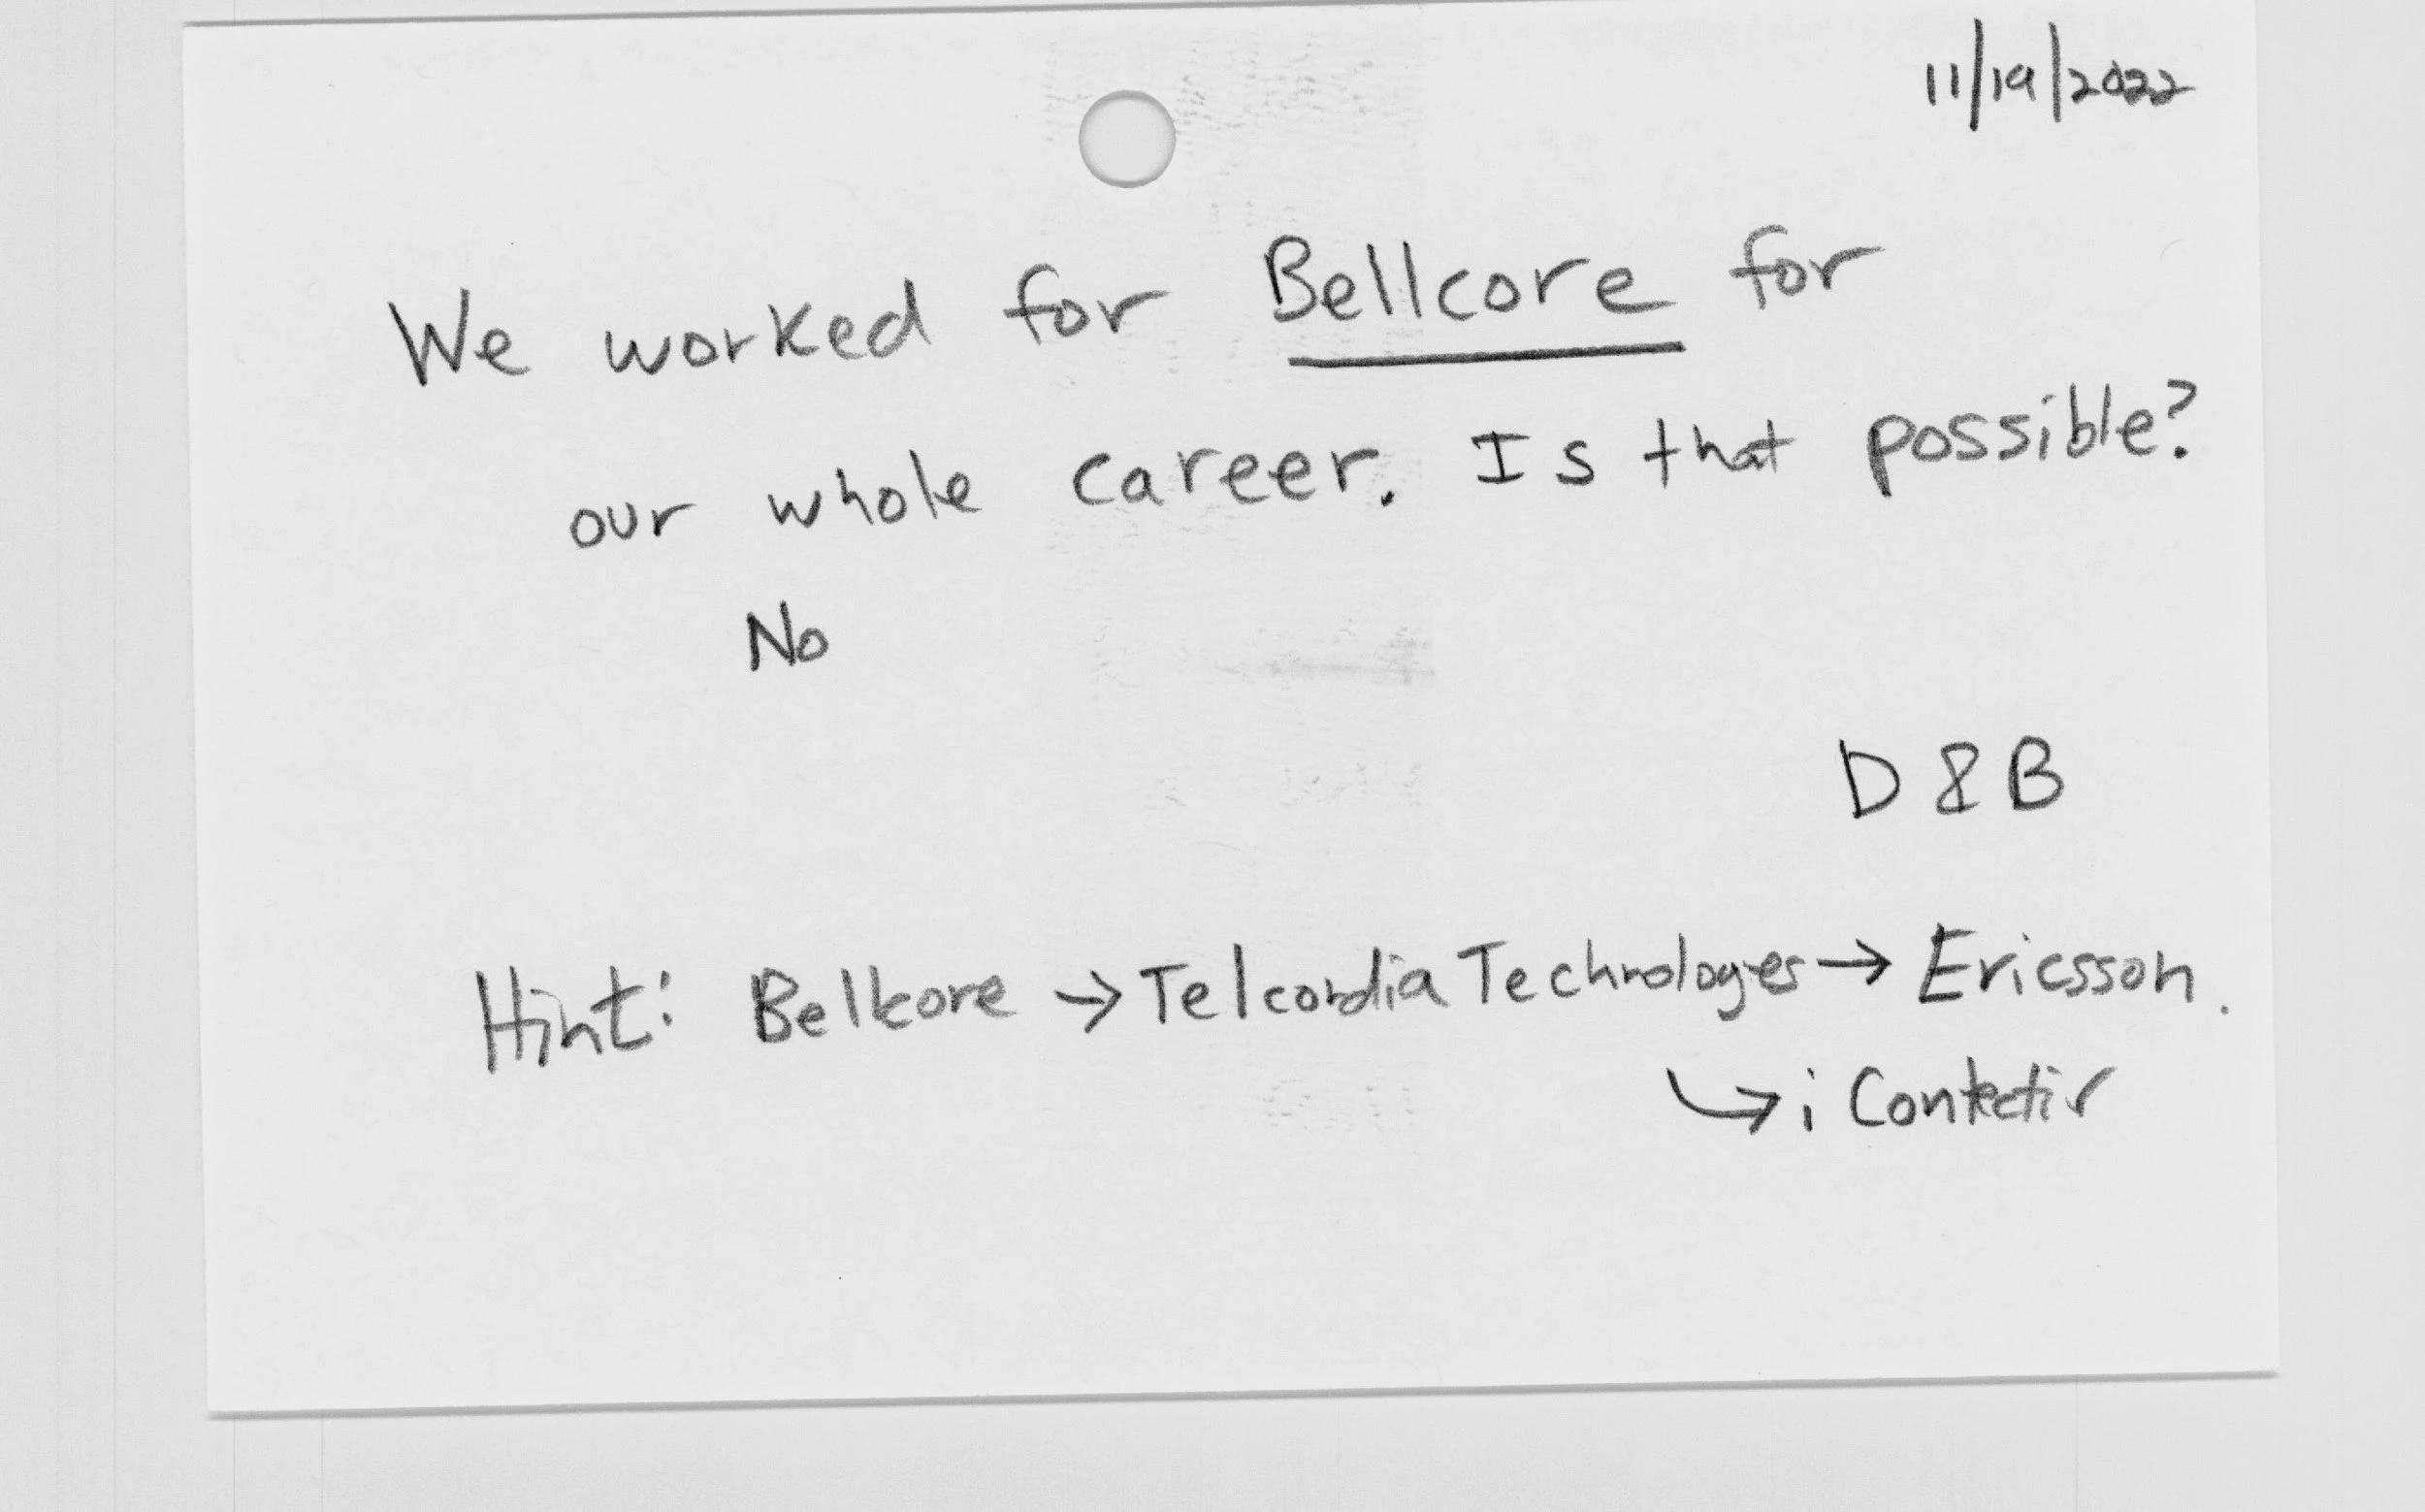 11/19/2022
We worked for Bellcore for
our whole career. Is that possible?
No
D & B
Hint: Bellcore → Telcordia Technologes → Ericsson.
↳ i Contectiv